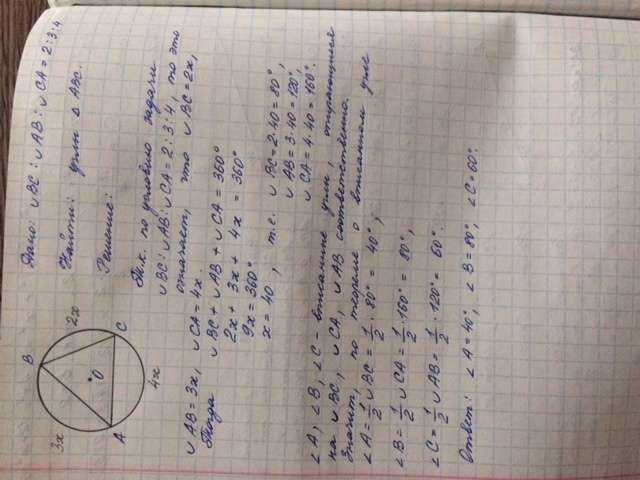 Дано: ∪BC : ∪AB : ∪CA = 2:3:4
Найти: углы Δ ABC.
Решение:
B
2x
C
O
3x
A
4x
Т.к. по условию задачи
∪BC : ∪AB : ∪CA = 2:3:4, то это
означает, что ∪BC = 2x,
∪AB = 3x, ∪CA = 4x.
Тогда ∪BC + ∪AB + ∪CA = 360°
2x + 3x + 4x = 360°
9x = 360°
x = 40, т.е. ∪BC = 2·40 = 80°,
∪AB = 3·40 = 120°,
∪CA = 4·40 = 160°.
∠A, ∠B, ∠C - вписанные углы, опирающиеся
на ∪BC, ∪CA, ∪AB соответственно.
Значит, по теореме о вписанном угле
∠A = 1/2 ∪BC = 1/2 · 80° = 40°;
∠B = 1/2 ∪CA = 1/2 · 160° = 80°,
∠C = 1/2 ∪AB = 1/2 · 120° = 60°.
Ответ: ∠A = 40°, ∠B = 80°, ∠C = 60°.